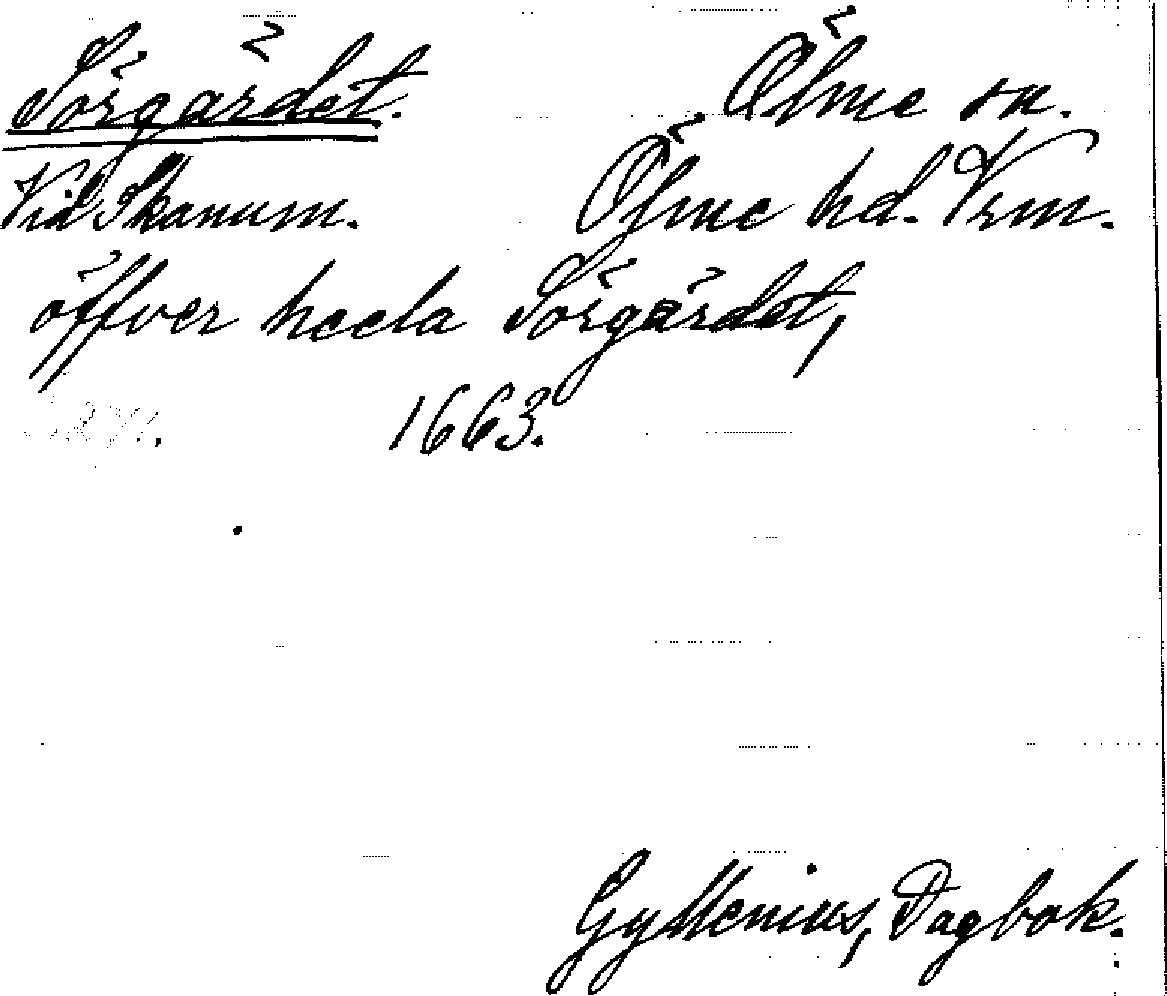 Sörgärdet. Ölme sn.
Vid Skanum. Ölme hd. Vrm.
öffver heela Sörgärdet,
1663.
Gyllenius, Dagbok.